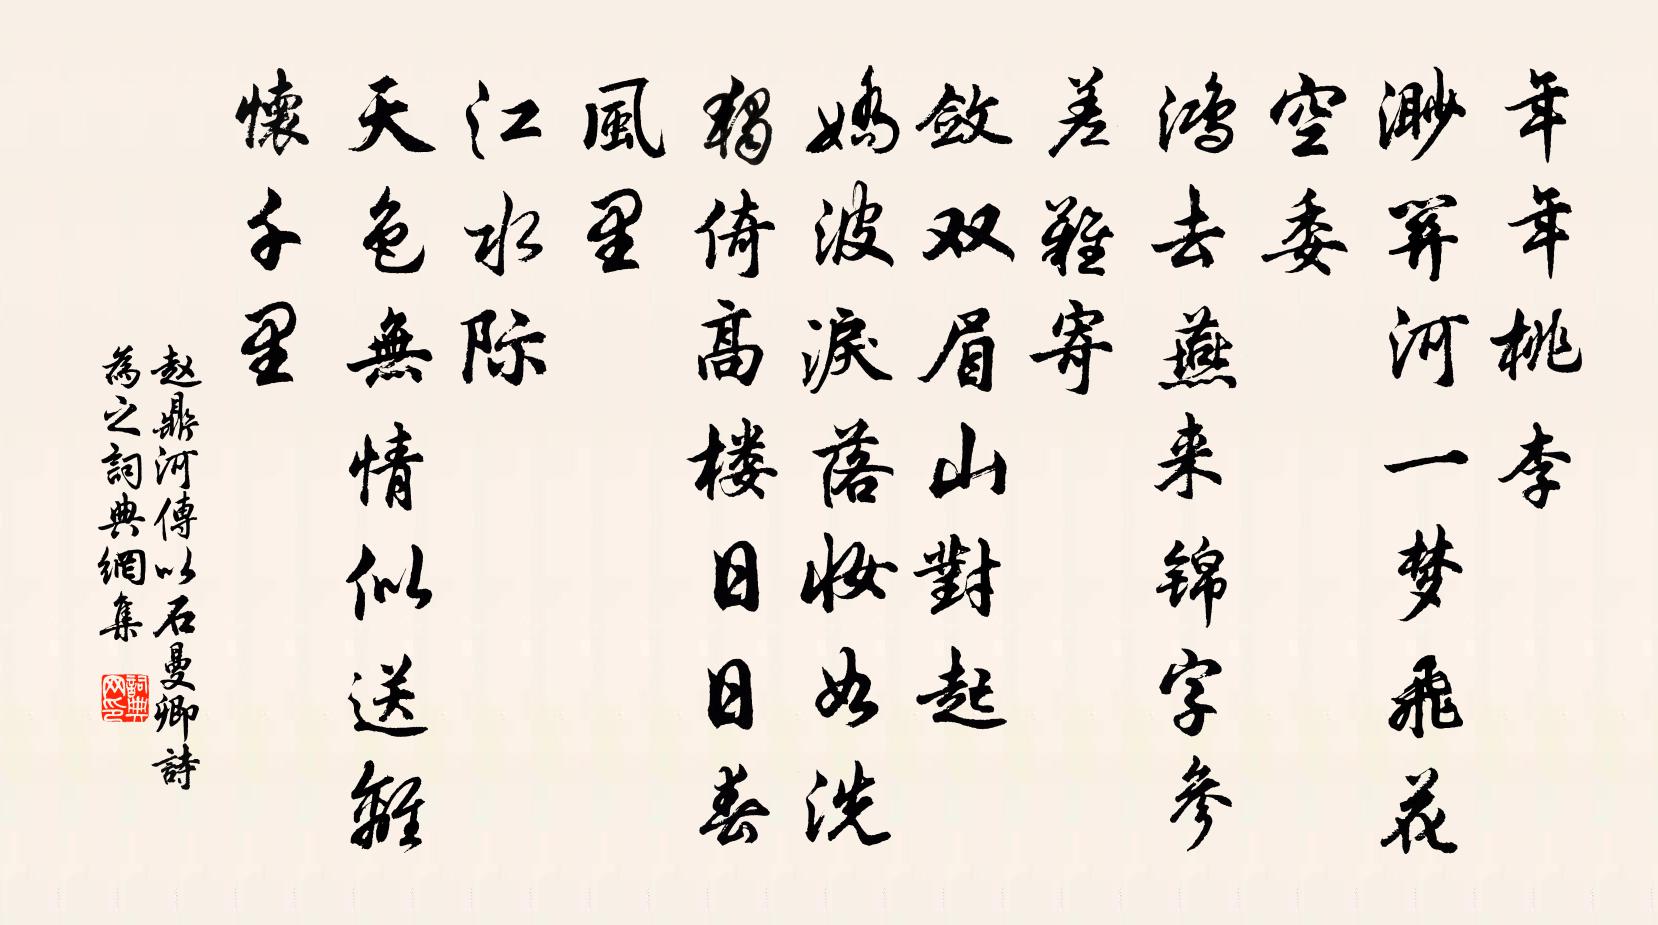 年年桃李
渺關河一梦飛花
空委
鸿去燕来锦字參
差難寄
斂双眉山對起
嬌波淚落妆如洗
獨倚高楼日日春
風里
江水际
天色無情似送離
懷千里
赵鼎河傳以石曼卿詩
為之詞典網集
詞典
网印